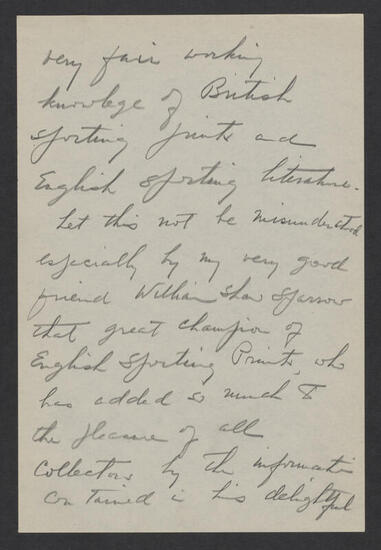 very fair working
knowlege of British
sporting prints and
English sporting literature.
Let this not be misunderstood
especially by my very good
friend William Shaw Sparrow
that great champion of
English Sporting Prints, who
has added so much to
the pleasure of all
collectors by the informati
contained in his delightful